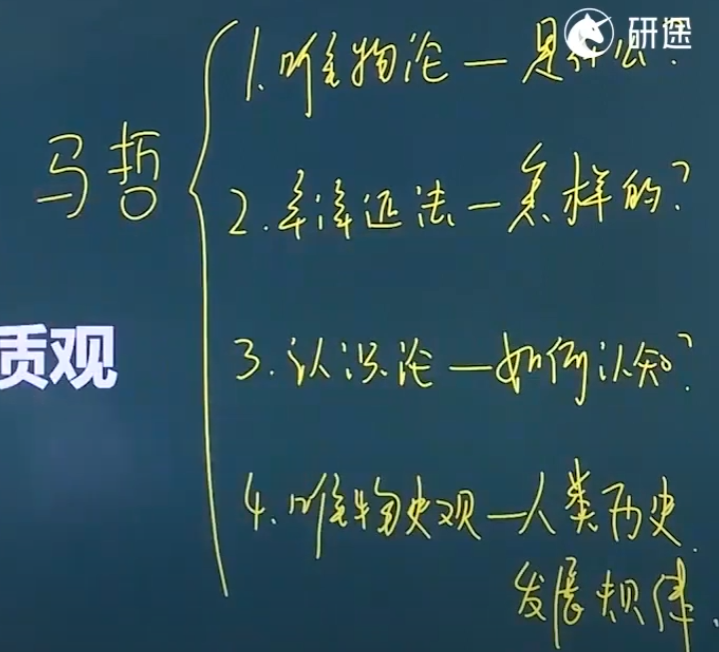 研途
马哲
1.唯物论—是什么?
2.辛淕证法—怎样的?
3.认识论—如何认知?
质观
4.唯物史观—人类历史
发展规律.